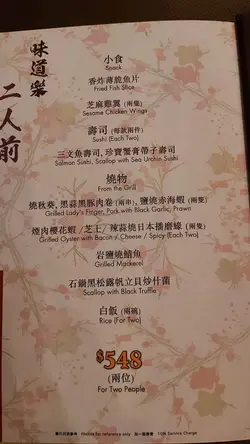 味道樂
二人前
小食
Snack
香炸薄脆魚片
Fried Fish Slice
芝麻雞翼 (兩隻)
Sesame Chicken Wings
壽司 (每款兩件)
Sushi (Each Two)
三文魚壽司, 珍寶蟹膏帶子壽司
Salmon Sushi, Scallop with Sea Urchin Sushi
燒物
From the Grill
燒秋葵, 黑蒜黑豚肉卷 (兩串), 鹽燒赤海蝦 (兩隻)
Grilled Lady's Finger, Pork with Black Garlic, Prawn
煙肉櫻花蝦 / 芝士 / 辣蒜燒日本播磨蠔 (兩隻)
Grilled Oyster with Bacon / Cheese / Spicy (Each Two)
岩鹽燒鯖魚
Grilled Mackerel
石鍋黑松露帆立貝炒什菌
Scallop with Black Truffle
白飯 (兩碗)
Rice (For Two)
$548
(兩位)
For Two People
圖片只供參考 Photos for reference only 加一服務費 10% Service Charge